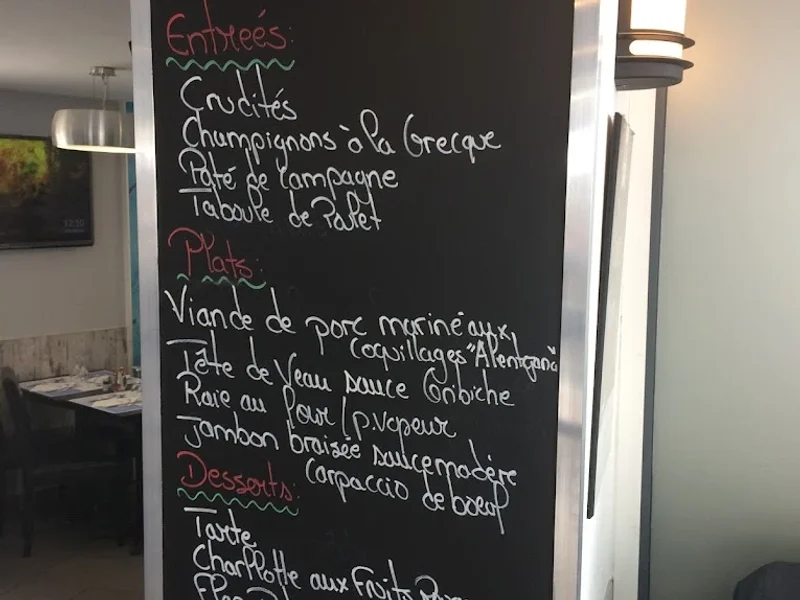 Entreés:
Crudités
Champignons à la Grecque
Pâté de campagne
Taboule de Poulet
Plats:
Viande de porc mariné aux
Coquillages "Alentejana"
Tête de Veau sauce Gribiche
Raie au four / p.vapeur
Jambon braisée sauce madère
Carpaccio de boeuf
Desserts:
Tarte
Charllotte aux Fruits